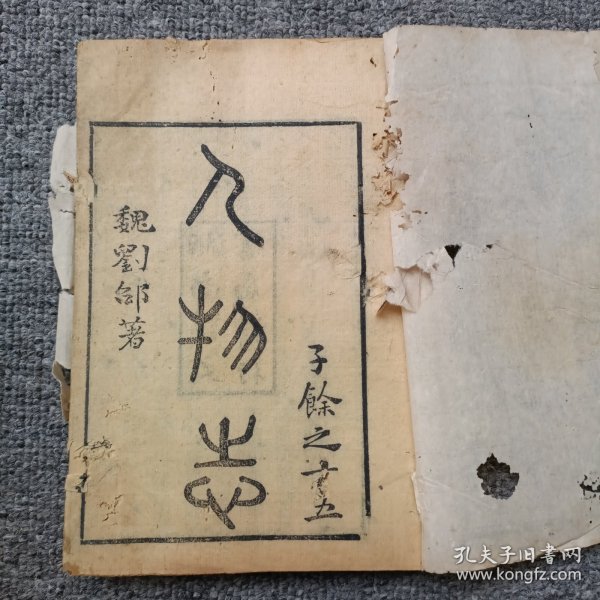 子餘之五
人物志
魏劉邵著
孔夫子旧书网
www.kongfz.com